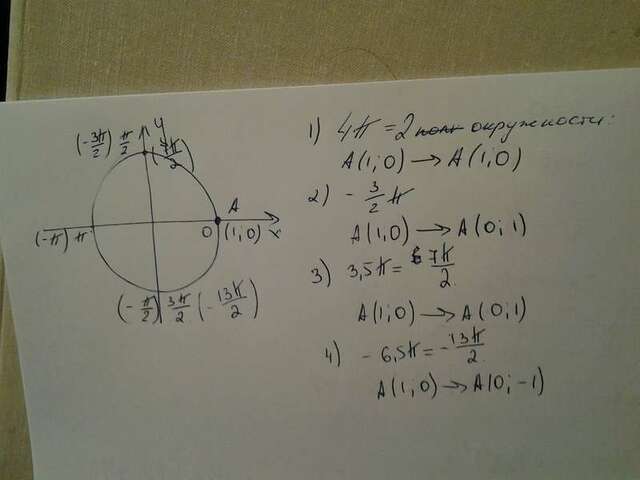 y
(-3π/2) π/2 (7π/2)
A
(-π) π 0 (1;0) x
(-π/2) 3π/2 (-13π/2)
1) 4π = 2 окружности:
A(1;0) → A(1;0)
2) -3/2 π
A(1,0) → A(0;1)
3) 3,5π = 7π/2
A(1;0) → A(0;1)
4) -6,5π = -13π/2
A(1;0) → A(0;-1)